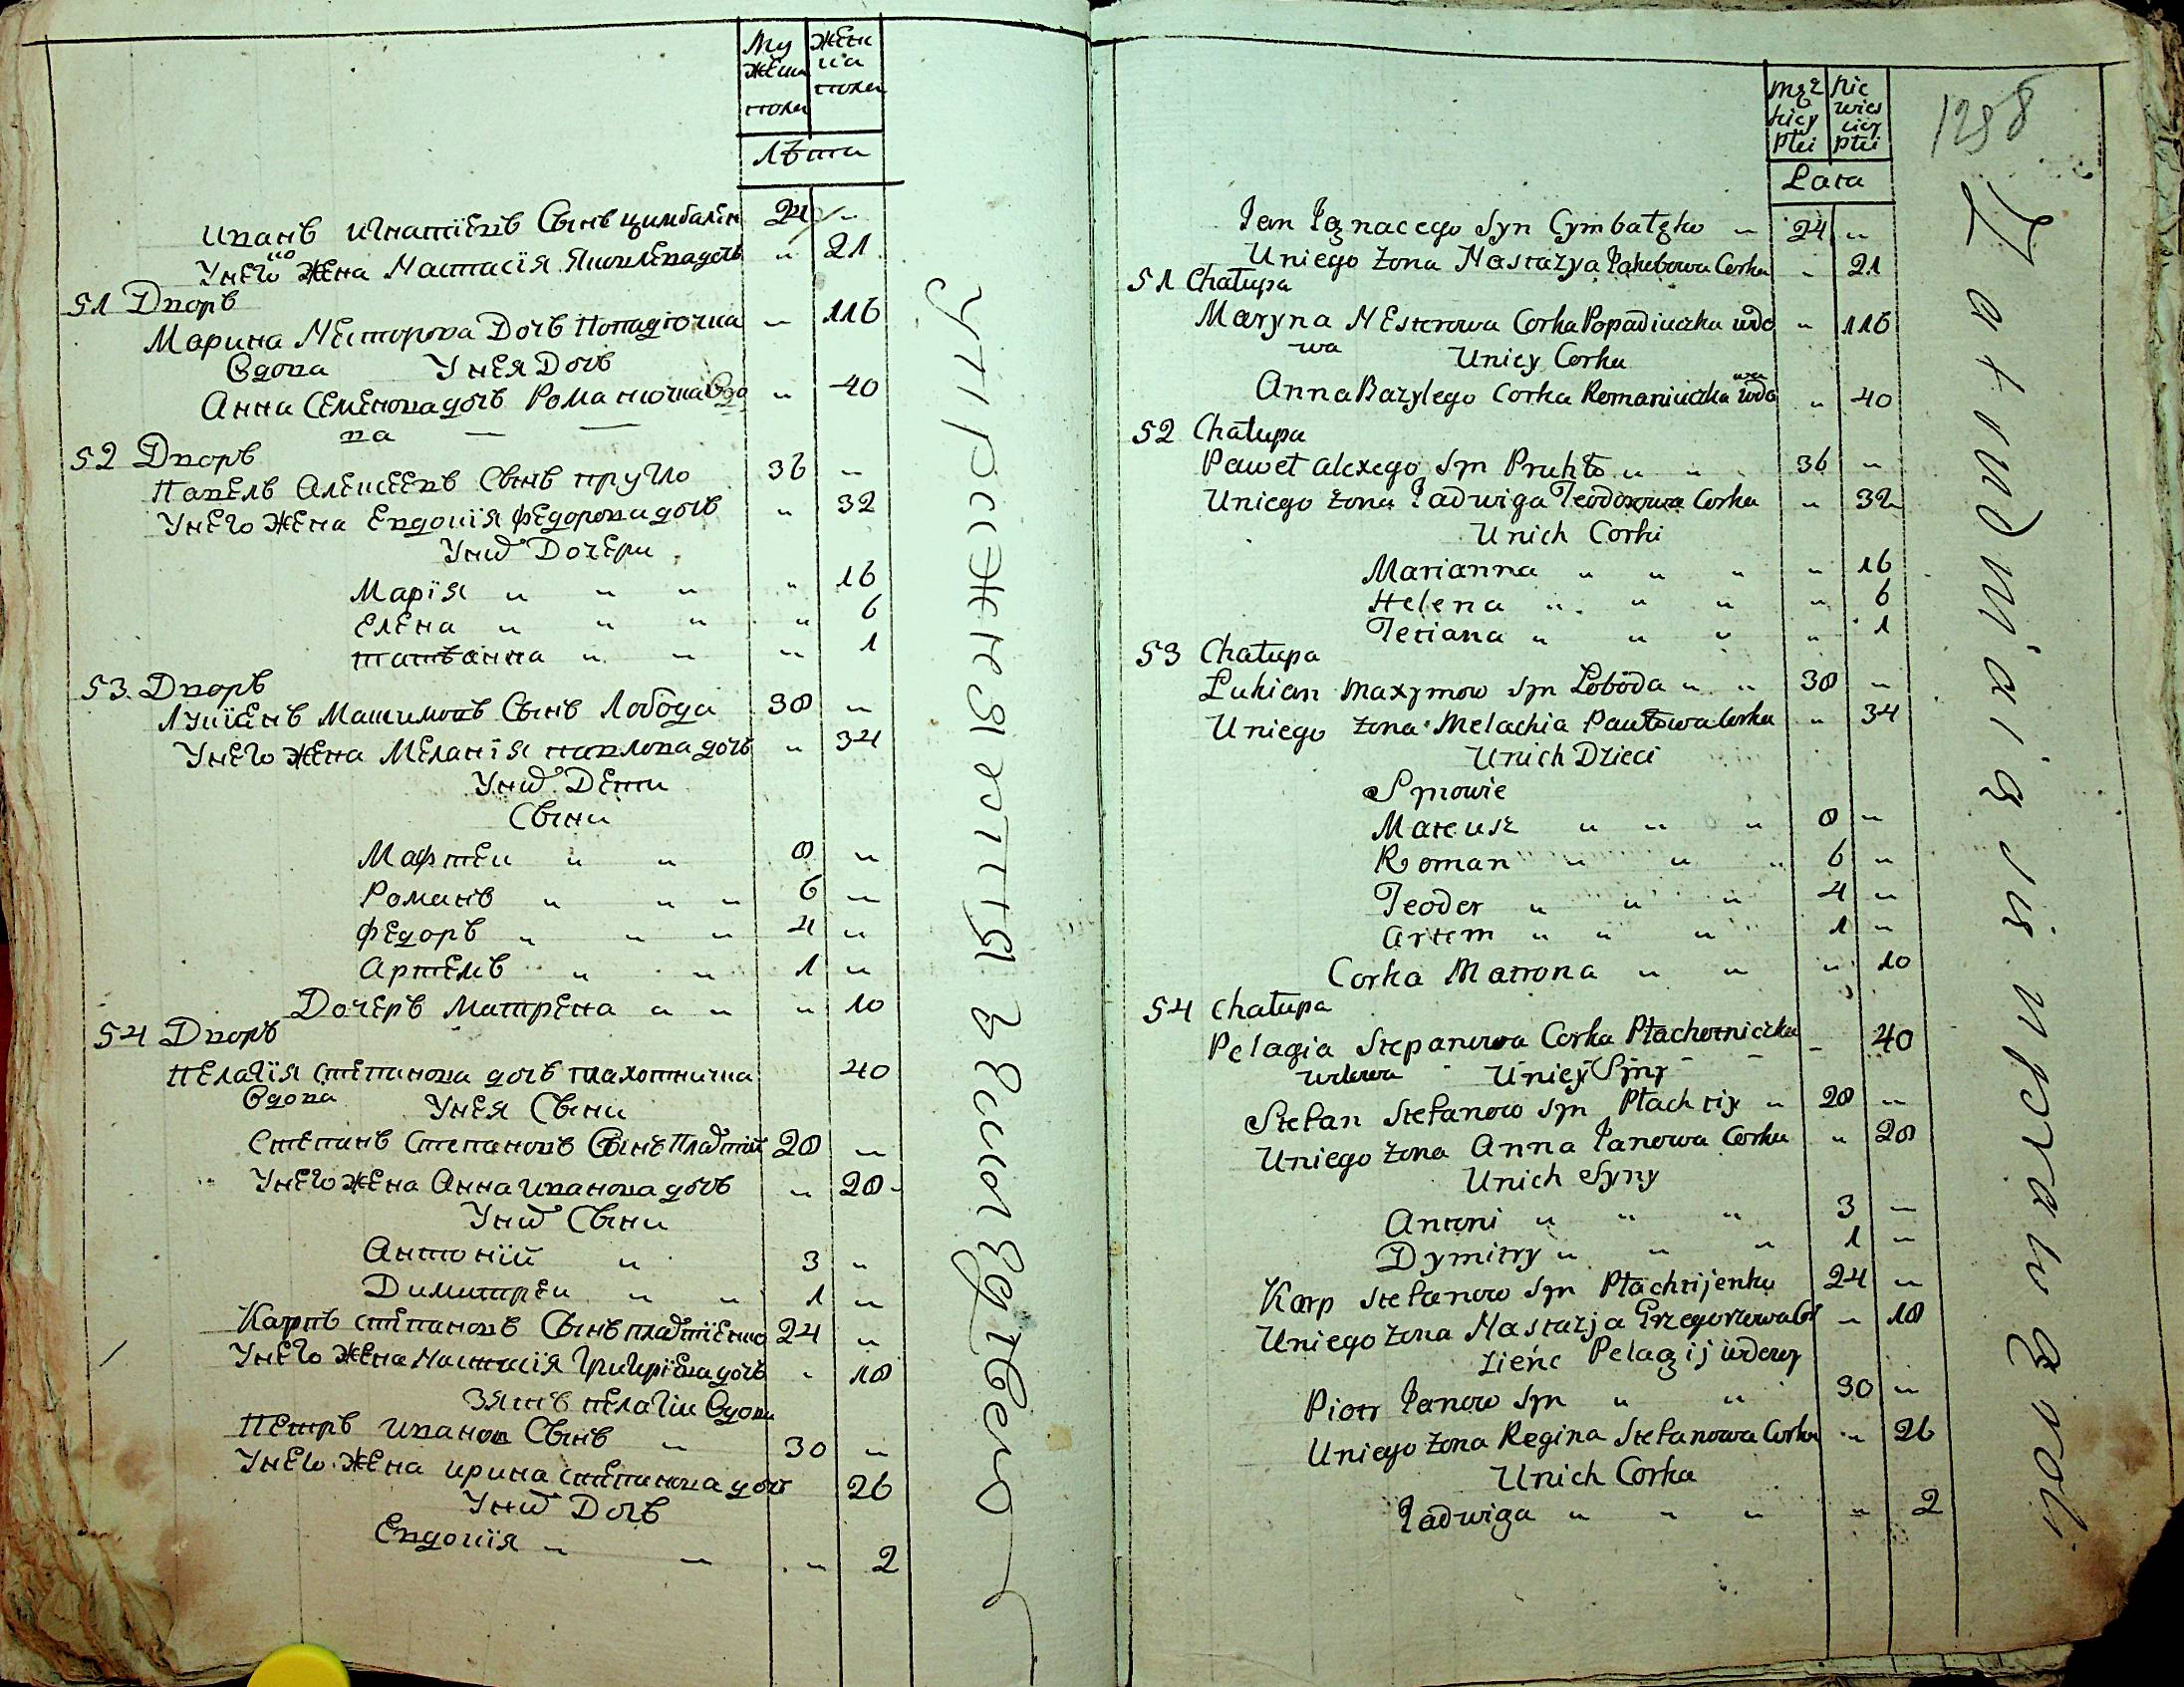 Му
жеска
пола
Жен
ска
пола
Лѣта
Иванъ Игнатіевъ Сынъ Цимбален
ко
24 "
У него Жена Настасія Яковлева дочь " 21
51 Дворъ
Марина Несторова Дочь Попадючка " 116
Вдова У нея Дочь
Анна Семенова дочь Романючка Вдо " 40
ва
52 Дворъ
Павелъ Алексеевъ Сынъ Пругло 36 "
У него Жена Евдокія Федорова дочь " 32
У них Дочери
Марія " " " " 16
Елена " " " " 6
Татьанна " " " 1
53 Дворъ
Лукіанъ Максимовъ Сынъ Лобода 38 "
У него Жена Меланія Павлова дочь " 34
У них Дети
Сыни
Мафтеи " " 8 "
Романъ " " " 6 "
Федоръ " " " 4 "
Артемъ " " 1 "
Дочеръ Матрена " " " 10
54 Дворъ
Пелагія Степанова дочь Плахотничка 40
Вдова У нея Сыни
Степанъ Степановъ Сынъ Плахтій 28 "
У него Жена Анна Иванова дочь " 28
У них Сыни
Антоній " 3 "
Димитреи " " 1 "
Карпъ Степановъ Сынъ Плахтіенко 24 "
У него Жена Настасія Григоріева дочь " 18
Зять Пелагіи Вдови
Петръ Иванов Сынъ " 30 "
У него Жена Ирина Степанова дочь 26
У них Дочь
Евдокія " " " 2
Męz
kiey
Płci
Nie
wies
ciey
Płci
Lata
1298
Jan Jgnacego Syn Cymbałzko " 24 "
Uniego Żona Nastazya Jakubowa Corka " 21
51 Chałupa
Maryna Nesterowa Corka Popadiuczka wdo " 116
wa Uniey Corka
wa
Anna Bazylego Corka Romaniuczka wdo " 40
52 Chałupa
Paweł Alexego Syn Pruhło " " 36 "
Uniego Żona Jadwiga Teodorowa Corka " 32
Unich Corki
Marianna " " " " 16
Helena " " " " 6
Teciana " " " " 1
53 Chałupa
Łukian Maxymow Syn Łoboda " " 38 "
Uniego Żona Melachia Pawłowa Corka " 34
Unich Dzieci
Synowie
Mateusz " " " 8 "
Roman " " " 6 "
Teodor " " " 4 "
Artem " " " 1 "
Corka Matrona " " " 10
54 Chałupa
Pelagia Stepanowa Corka Płachotniczka " 40
wdowa Uniey Syny
Stefan Stefanow Syn Płachtiy " 28 "
Uniego Żona Anna Janowa Corka " 28
Unich Syny
Antoni " " " 3 "
Dymitry " " " 1 "
Karp Stefanow Syn Płachtijenko 24 "
Uniego Żona Nastazja Grzegorzowa Cor " 18
Zieńc Pelagij wdowy
Piotr Janow Syn " " 30 "
Uniego Żona Regina Stefanowa Corka " 26
Unich Corka
Jadwiga " " " " 2